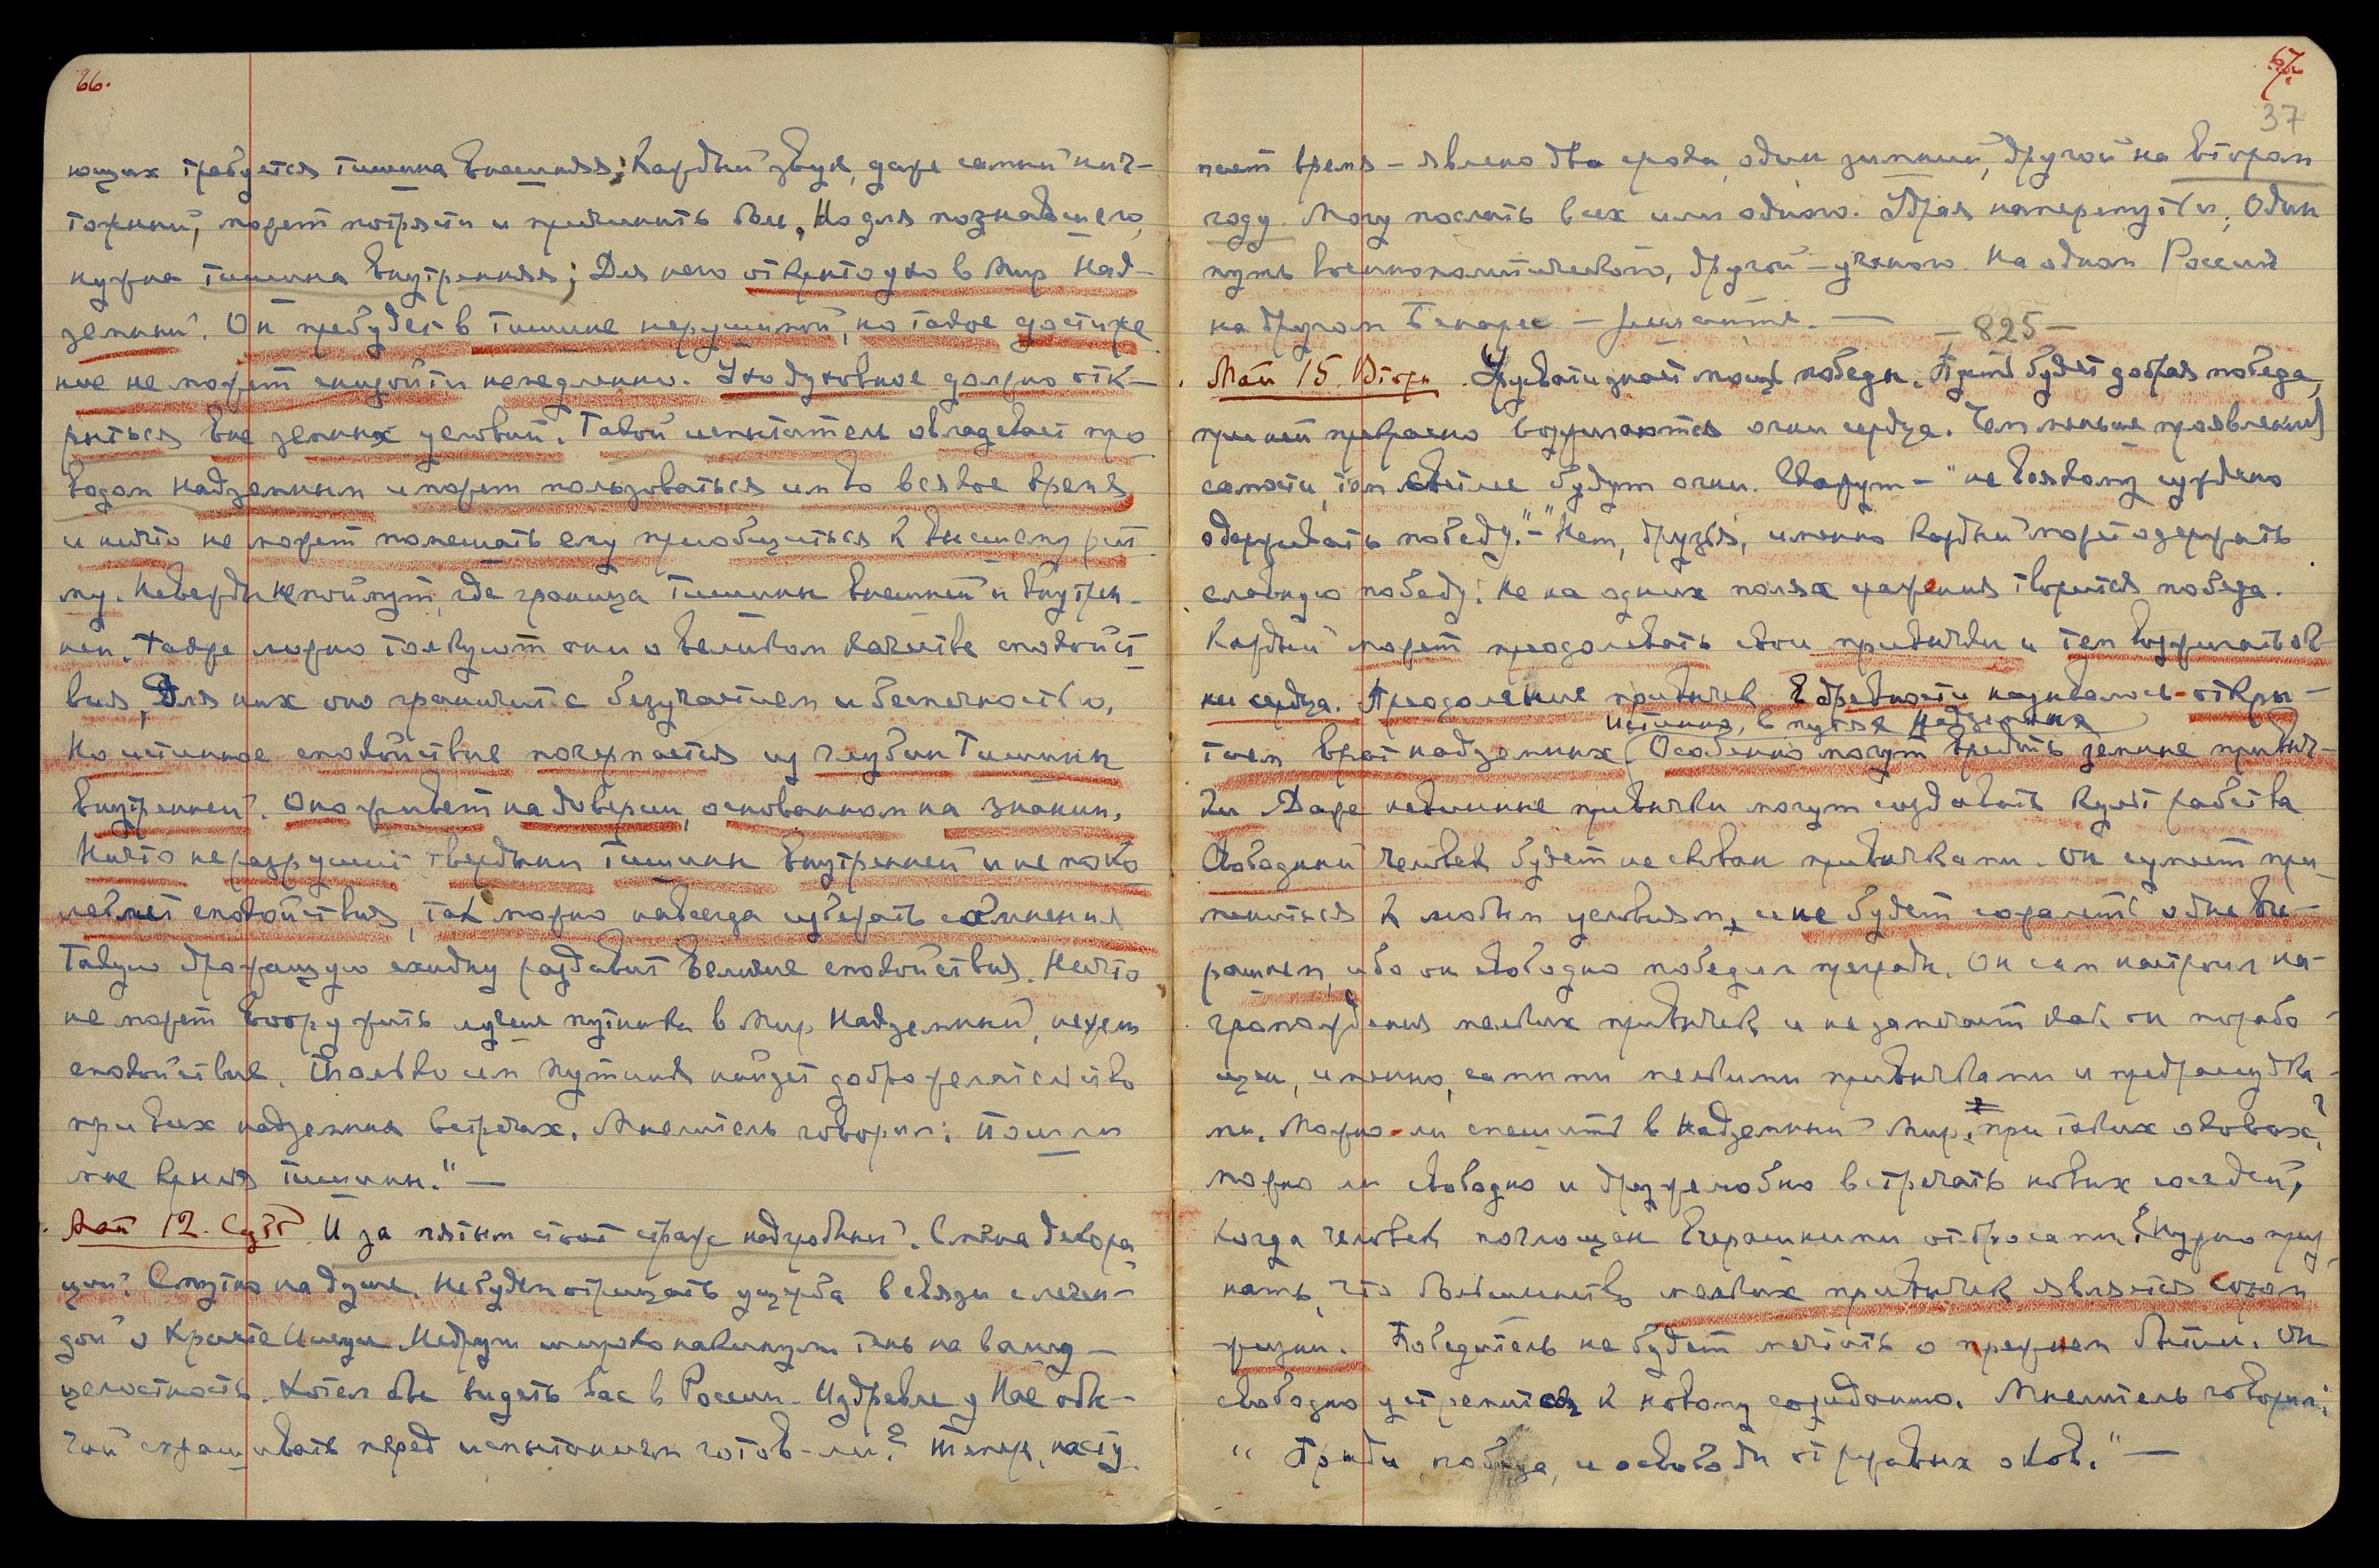 66.
ющих требуется тишина внешняя; Каждый звук, даже самый нич-
тожный, может потрясти и причинить боль, Но для познавшего,
нужна тишина внутренняя; Для него открыто ухо в Мир Над-
земный. Он пребудет в тишине нерушимой, но такое достиже
ние не может снизойти немедленно. Ухо духовное должно отк-
рыться вне земных условий. Такой испытатель овладевает про
водом надземным и может пользоваться им во всякое время
и ничто не может помешать ему приобщиться к высшему рит
му. Невежды не поймут, где граница тишины внешней и внутрен-
ней. Также ложно толкуют они о великом качестве спокойст
вия, Для них оно граничит с безучастием и беспечностью,
Но истинное спокойствие почерпается из глубин Тишины
внутренней. Оно живет на доверии, основанном на знании.
Ничто не разрушит твердыни Тишины внутренней и не поко
леблет спокойствия, так можно навсегда изберечь сомнения
Такую дрожащую ехидну раздавит величие спокойствия. Ничто
не может вооружить лучше путника в Мир Надземный, нежели
спокойствие. Только им путник найдет доброжелательство
при всех надземных встречах. Мыслитель говорил: Пошли
мне крылья тишины." —
Май 12. Субб. И за пятым стоит страж надгробный. Смена декора
ций. Смутно на душе. Не будем отрицать ущерба в связи с леген-
дой о Кресте Иисуса. Недруги широко накинули тень на вашу -
целостность. Хотел бы видеть вас в России. Издревле у Нас обы-
чай спрашивать перед испытанием готов-ли? Теперь, насту
67.
37
пает время - явлено два срока, один зимний, другой на втором
году. Могу послать всех или одного. Удрая напереиутьи, Один
путь военнополитического, другой - ученого. На одном Россия
на другом Бенарес — решайте. —
- 825 -
Май 15. Вторн. Существует мощь победы. Пусть будет добрая победа,
при ней прекрасно возжигаются огни сердца. Чем меньше проявлений
самости, тем светлее будут огни. Скажут - "не всякому суждено
одерживать победу." - "Нет, друзья, именно каждый может одержать
славную победу: Не на одних полях сражения творится победа.
Каждый может преодолевать свои привычки и тем возжигать ог-
ни сердца. Преодоление привычек в древности называлось - откры-
Истинно, в путях Надземных
тием врат надземных (Особенно могут вредить земные привыч-
ки Даже невинные привычки могут создавать культ рабства
Свободный человек будет не скован привычками. Он сумеет при
мениться к любым условиям, и не будет сожалеть о дне вче-
рашнем, ибо он свободно победил преграды. Он сам настроил на-
громождения мелких привычек и не замечает как он порабо-
щен, именно, самыми мелкими привычками и предрассудка-
ми. Можно-ли спешить в Надземный Мир, при таких оковах?
можно ли свободно и дружелюбно встречать новых соседей,
когда человек поглощен вчерашними отбросами? Нужно приз
нать, что большинство мелких привычек является сором
жизни. Победитель не будет мечтать о прежнем бытии. Он
свободно устремится к новому созиданию. Мыслитель говорил:
" Приди, победа, и освободи от ржавых оков." —